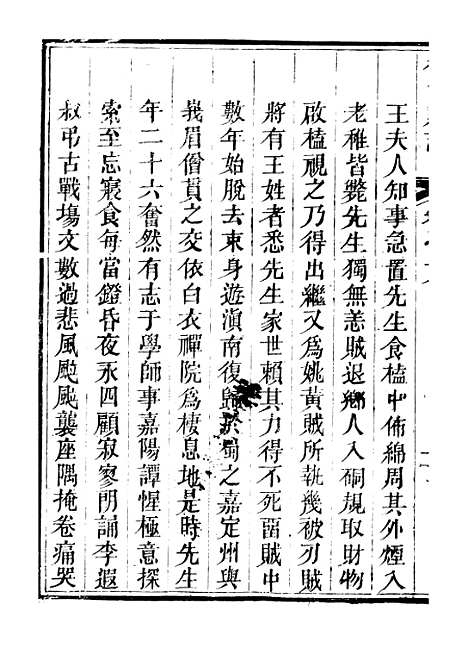 王夫人知事急置先生食榼中佈綿周其外煙入
老稚皆斃先生獨無恙賊退鄉人入硐規取財物
啟榼視之乃得出繼又爲姚黃賊所執幾被刃賊
將有王姓者悉先生家世賴其力得不死畱賊中
數年始脫去束身遊滇南復歸於蜀之嘉定州與
峩眉僧貫之交依白衣禪院爲棲息地是時先生
年二十六奮然有志于學師事嘉陽譚惺極意探
索至忘寢食每當鐙昏夜永四顧寂寥閉誦李遐
叔弔古戰場文數過悲風颼颼襲座隅掩卷痛哭